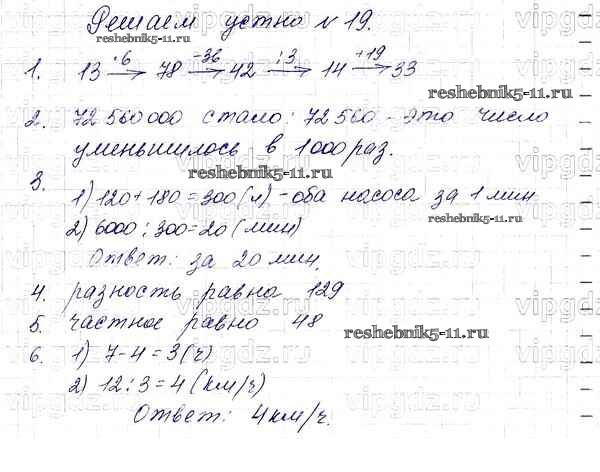 Решаем устно № 19.
reshebnik5-11.ru
1. 13 ·6→ 78 -36→ 42 :3→ 14 +19→ 33
reshebnik5-11.ru
2. 72 560 000 стало: 72 560 - это число
уменьшилось в 1000 раз.
reshebnik5-11.ru
3. 1) 120 + 180 = 300 (л) - оба насоса за 1 мин
reshebnik5-11.ru
2) 6000 : 300 = 20 (мин)
Ответ: за 20 мин.
4. разность равна 129
5. частное равно 48
reshebnik5-11.ru
6. 1) 7 - 4 = 3 (ч)
2) 12 : 3 = 4 (км/ч)
Ответ: 4 км/ч.
vipgdz.ru